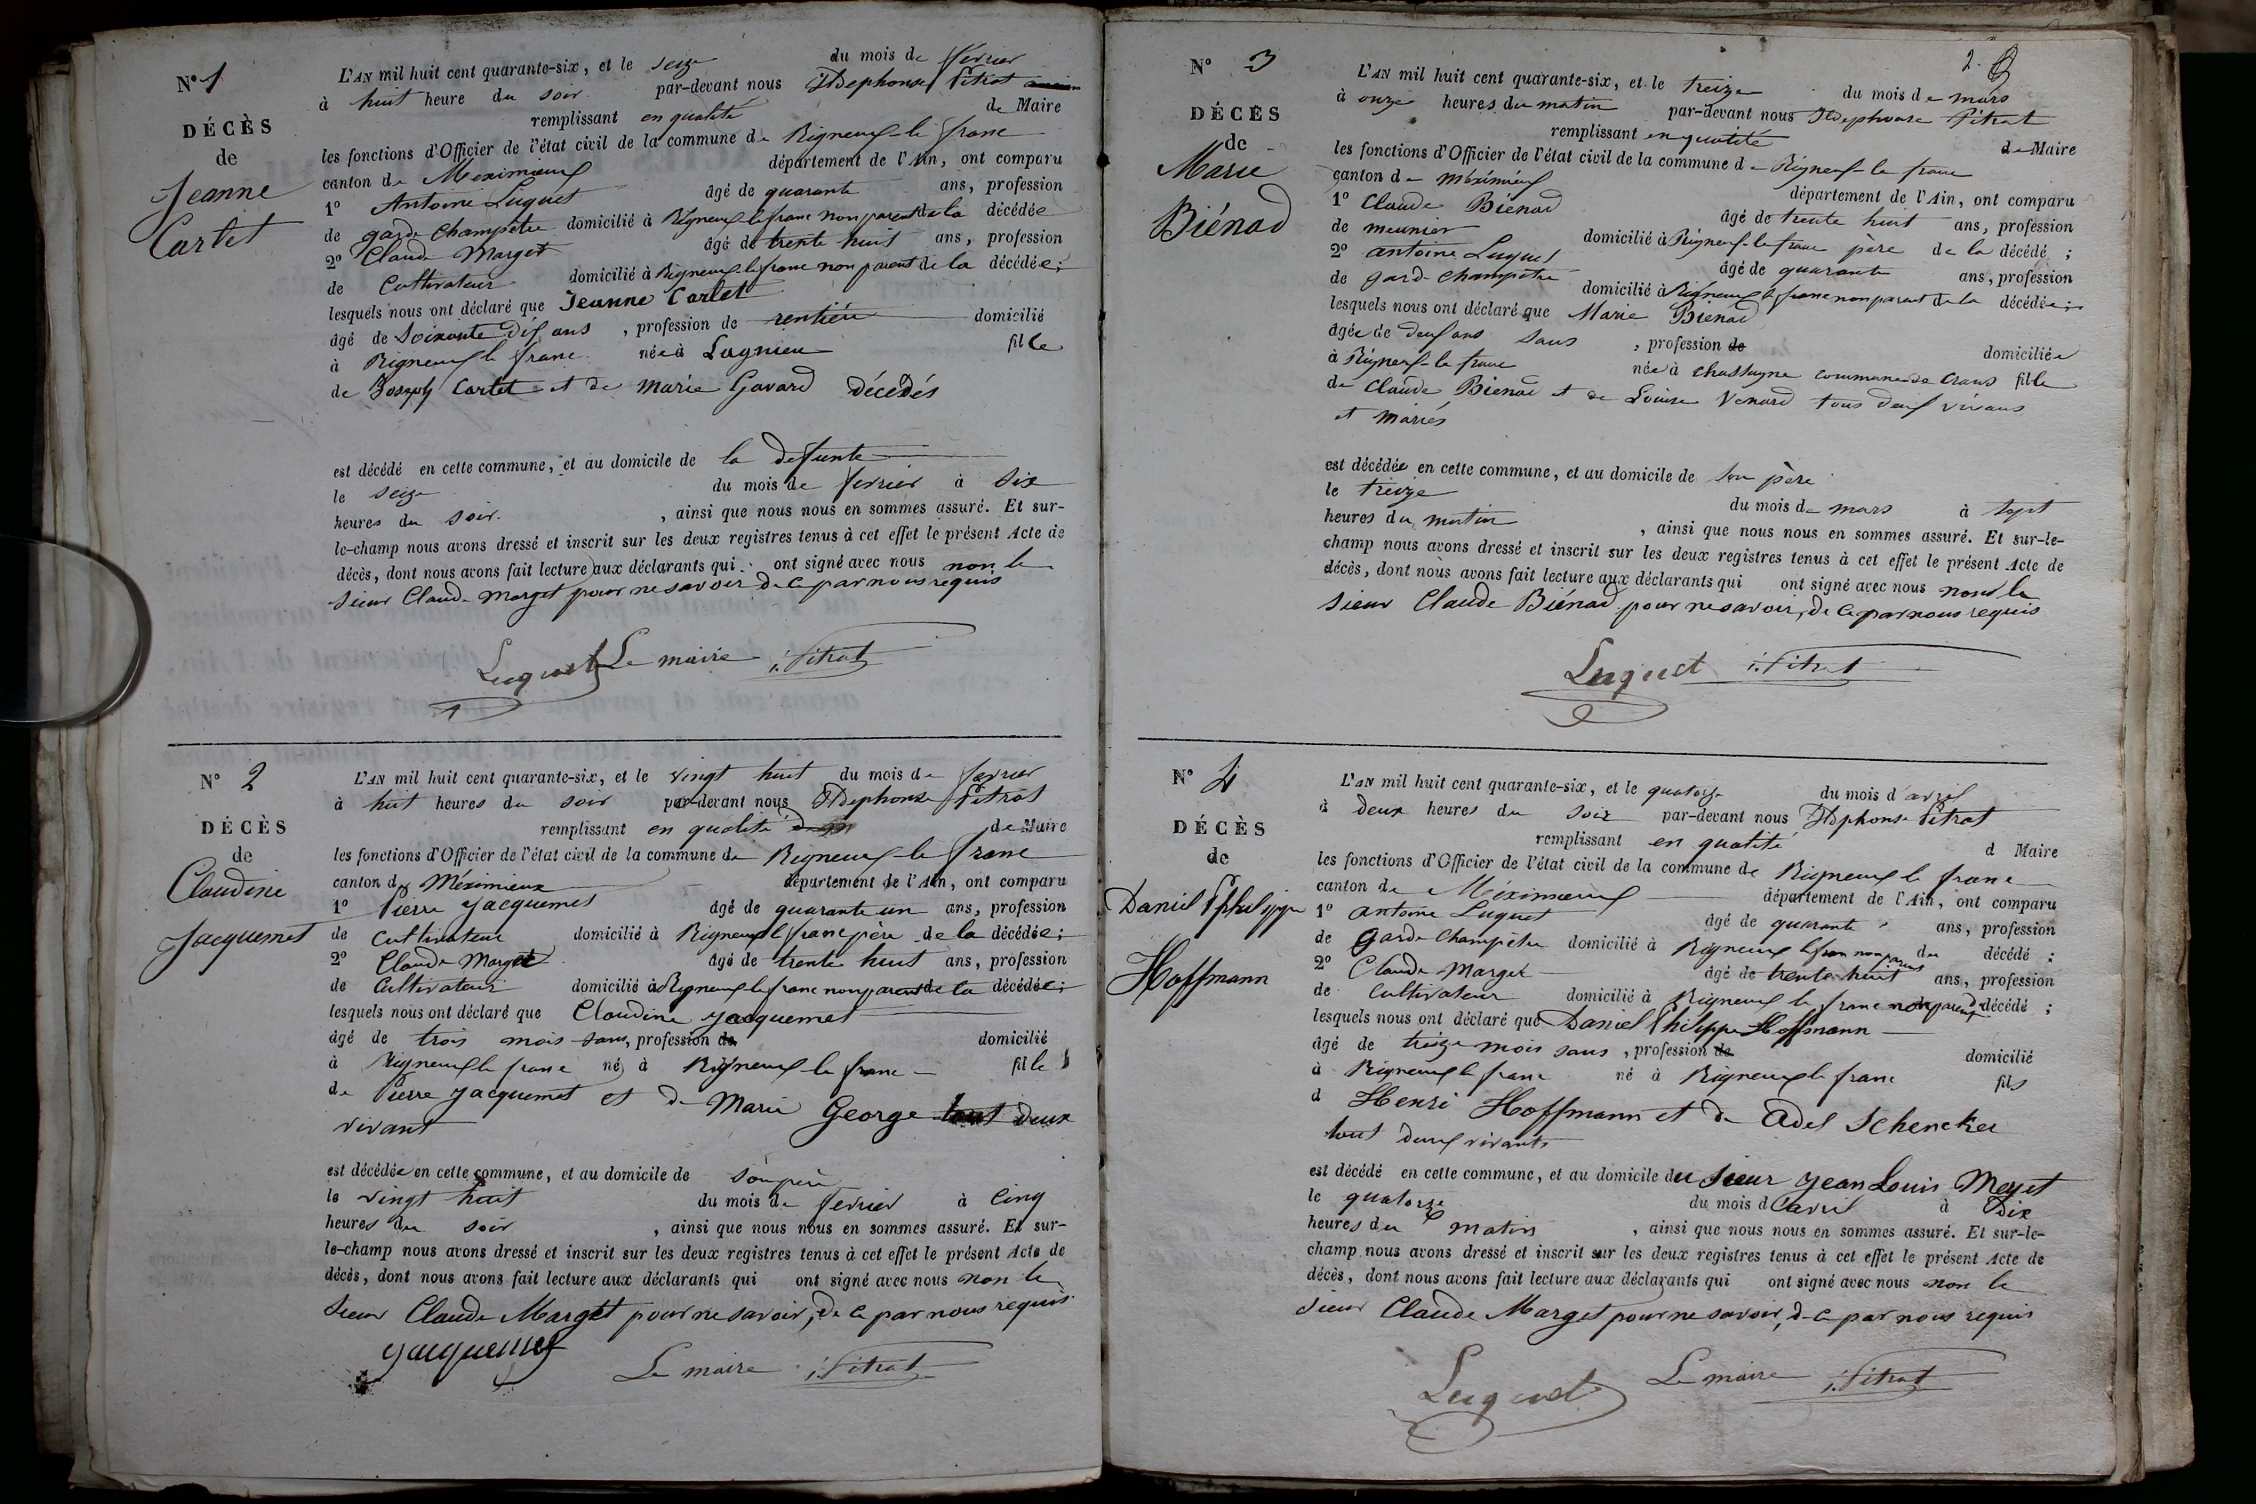 N° 1
DÉCÈS
de
Jeanne
Cartet
L'AN mil huit cent quarante-six, et le seize du mois de fevrier
à huit heure du soir par-devant nous Ildephonse Pitrat
remplissant en qualité de Maire
les fonctions d'Officier de l'état civil de la commune de Rigneux le franc
canton de Meximieux département de l'Ain, ont comparu
1° Antoine Luquet âgé de quarante ans, profession
de garde champêtre domicilié à Rigneux le franc non parent de la décédée
2° Claude Marget âgé de trente huit ans, profession
de Cultivateur domicilié à Rigneux le franc non parent de la décédée;
lesquels nous ont déclaré que Jeanne Cartet
âgé de Soixante dix ans, profession de rentière domicilié
à Rigneux le franc née à Lagnieu fille
de Joseph Cartet et de Marie Gavard décédés
est décédé en cette commune, et au domicile de la defunte
le seize du mois de fevrier à six
heures du soir, ainsi que nous nous en sommes assuré. Et sur-
le-champ nous avons dressé et inscrit sur les deux registres tenus à cet effet le présent Acte de
décès, dont nous avons fait lecture aux déclarants qui ont signé avec nous non le
sieur Claude Marget pour ne savoir de ce par nous requis
Luquet Le maire i. Pitrat
N° 2
DÉCÈS
de
Claudine
Jacquemet
L'AN mil huit cent quarante-six, et le vingt huit du mois de fevrier
à huit heures du soir par-devant nous Ildephonse Pitrat
remplissant en qualité de Maire
les fonctions d'Officier de l'état civil de la commune de Rigneux le franc
canton de Méximieux département de l'Ain, ont comparu
1° Pierre Jacquemet âgé de quarante un ans, profession
de cultivateur domicilié à Rigneux le franc père de la décédée;
2° Claude Marget âgé de trente huit ans, profession
de Cultivateur domicilié à Rigneux le franc non parent de la décédée;
lesquels nous ont déclaré que Claudine Jacquemet
âgé de trois mois sans, profession de domicilié
à Rigneux le franc né à Rigneux le franc fille
de Pierre Jacquemet et de Marie George tout deux
vivant
est décédée en cette commune, et au domicile de son père
le vingt huit du mois de fevrier à Cinq
heures du soir, ainsi que nous nous en sommes assuré. Et sur-
le-champ nous avons dressé et inscrit sur les deux registres tenus à cet effet le présent Acte de
décès, dont nous avons fait lecture aux déclarants qui ont signé avec nous non le
sieur Claude Marget pour ne savoir, de ce par nous requis
Jacquemet Le maire i. Pitrat
2.
N° 3
DÉCÈS
de
Marie
Biénad
L'AN mil huit cent quarante-six, et le treize du mois de mars
à onze heures du matin par-devant nous Ildephonse Pitrat
remplissant en qualité de Maire
les fonctions d'Officier de l'état civil de la commune de Rigneux le franc
canton de Méximieux département de l'Ain, ont comparu
1° Claude Biénad âgé de trente huit ans, profession
de meunier domicilié à Rigneux le franc père de la décédé;
2° antoine Luquet âgé de quarante ans, profession
de garde champêtre domicilié à Rigneux le franc non parent de la décédée;
lesquels nous ont déclaré que Marie Biénad
âgée de deux ans sans, profession de domiciliée
à Rigneux le franc née à Chassagne commune de Crans fille
de Claude Biénad et de Louise Venard tous deux vivans
et mariés
est décédée en cette commune, et au domicile de son père
le treize du mois de mars à sept
heures du matin, ainsi que nous nous en sommes assuré. Et sur-le-
champ nous avons dressé et inscrit sur les deux registres tenus à cet effet le présent Acte de
décès, dont nous avons fait lecture aux déclarants qui ont signé avec nous non le
sieur Claude Biénad pour ne savoir, de ce par nous requis
Luquet i. Pitrat
N° 4
DÉCÈS
de
Daniel Philippe
Hoffmann
L'AN mil huit cent quarante-six, et le quatorze du mois d'avril
à deux heures du soir par-devant nous Ildephonse Pitrat
remplissant en qualité d Maire
les fonctions d'Officier de l'état civil de la commune de Rigneux le franc
canton de Méximieux département de l'Ain, ont comparu
1° antoine Luquet âgé de quarante ans, profession
de Garde Champêtre domicilié à Rigneux le franc non parent du décédé;
2° Claude Marget âgé de trente huit ans, profession
de Cultivateur domicilié à Rigneux le franc non parent du décédé;
lesquels nous ont déclaré que Daniel Philippe Hoffmann
âgé de treize mois sans, profession de domicilié
à Rigneux le franc né à Rigneux le franc fils
d Henri Hoffmann et de Adel Schencker
tout deux vivants
est décédé en cette commune, et au domicile du sieur Jean Louis Meyet
le quatorze du mois d'avril à Dix
heures du matin, ainsi que nous nous en sommes assuré. Et sur-le-
champ nous avons dressé et inscrit sur les deux registres tenus à cet effet le présent Acte de
décès, dont nous avons fait lecture aux déclarants qui ont signé avec nous non le
sieur Claude Marget pour ne savoir, de ce par nous requis
Luquet Le maire i. Pitrat